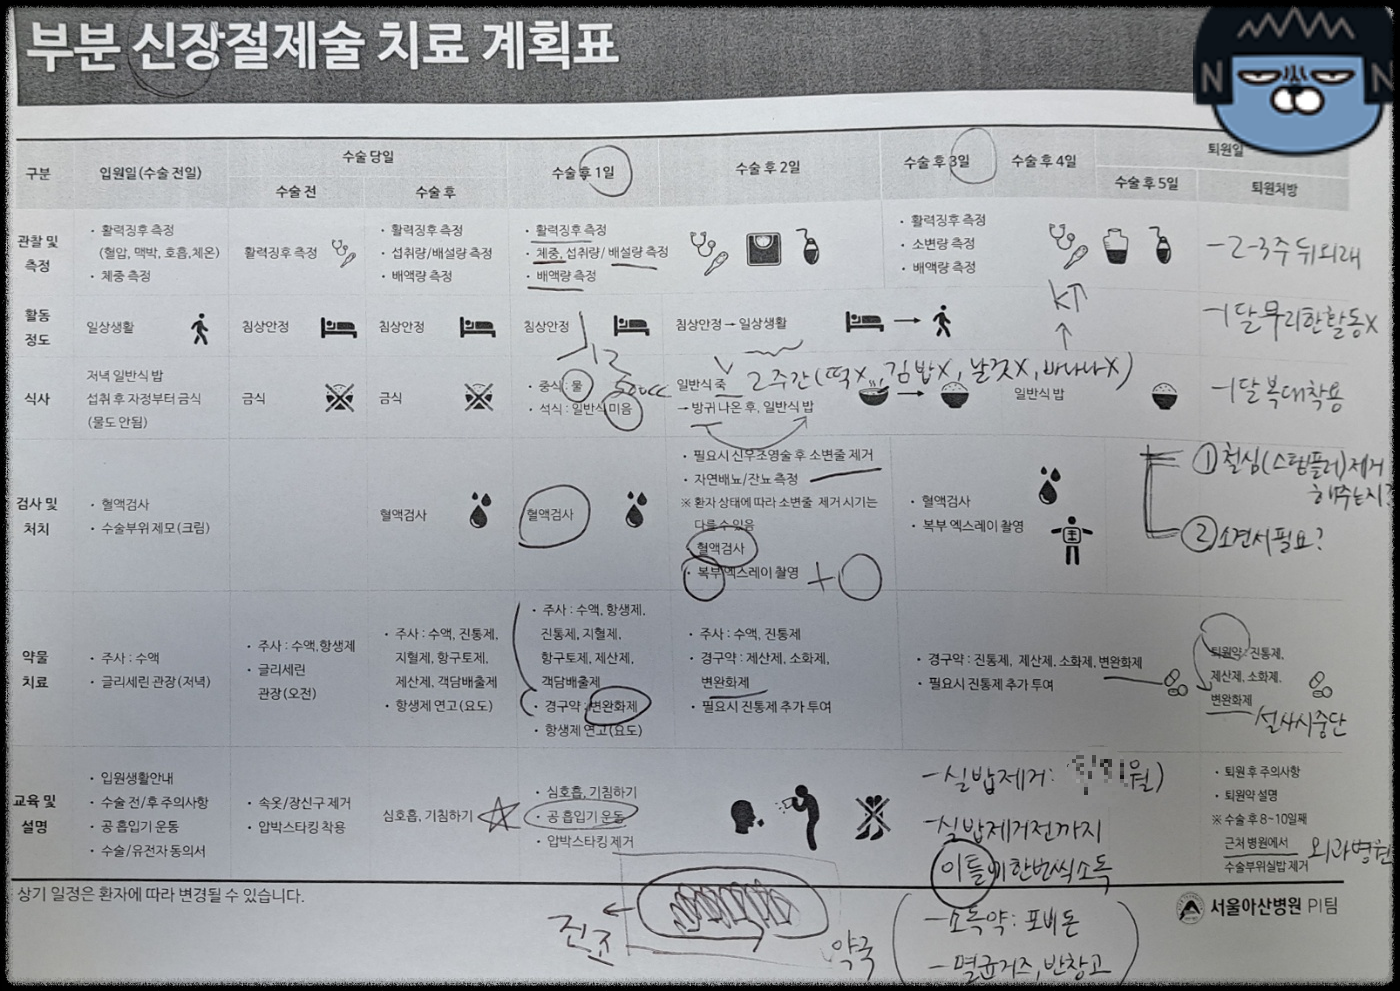 부분 신장절제술 치료 계획표
N N
구분
입원일(수술 전일)
수술 당일
수술 전
수술 후
수술 후 1일
수술 후 2일
수술 후 3일
수술 후 4일
퇴원일
수술 후 5일
퇴원처방
관찰 및
측정
· 활력징후 측정
(혈압, 맥박, 호흡,체온)
· 체중 측정
활력징후 측정
· 활력징후 측정
· 섭취량/배설량 측정
· 배액량 측정
· 활력징후 측정
· 체중, 섭취량/ 배설량 측정
· 배액량 측정
· 활력징후 측정
· 소변량 측정
· 배액량 측정
K↑
-2-3주 뒤 외래
활동
정도
일상생활
침상안정
침상안정
침상안정
침상안정 → 일상생활
-1달 무리한 활동X
식사
저녁 일반식 밥
섭취 후 자정부터 금식
(물도 안됨)
금식
금식
· 중식 : 물
500cc
· 석식 : 일반식 미음
일반식 죽
2주간(떡X, 김밥X, 날것X, 바나나X)
→ 방귀 나온 후, 일반식 밥
일반식 밥
-1달 복대착용
검사 및
처치
· 혈액검사
· 수술부위 제모(크림)
혈액검사
혈액검사
· 필요시 신우조영술 후 소변줄 제거
· 자연배뇨/잔뇨 측정
※ 환자 상태에 따라 소변줄 제거 시기는
다를 수 있음
· 혈액검사
· 복부 엑스레이 촬영
+
· 혈액검사
· 복부 엑스레이 촬영
① 철심(스템플러)제거
해주는지?
② 소견서 필요?
약물
치료
· 주사 : 수액
· 글리세린 관장(저녁)
· 주사 : 수액,항생제
· 글리세린
관장(오전)
· 주사 : 수액, 진통제,
지혈제, 항구토제,
제산제, 객담배출제
· 항생제 연고(요도)
· 주사 : 수액, 항생제,
진통제, 지혈제,
항구토제, 제산제,
객담배출제
· 경구약 : 변완화제
· 항생제 연고(요도)
· 주사 : 수액, 진통제
· 경구약 : 제산제, 소화제,
변완화제
· 필요시 진통제 추가 투여
· 경구약 : 진통제, 제산제, 소화제, 변완화제
· 필요시 진통제 추가 투여
퇴원약 : 진통제,
제산제, 소화제,
변완화제
설사시 중단
교육 및
설명
· 입원생활안내
· 수술 전/후 주의사항
· 공 흡입기 운동
· 수술/유전자 동의서
· 속옷/장신구 제거
· 압박스타킹 착용
심호흡, 기침하기
· 심호흡, 기침하기
· 공 흡입기 운동
· 압박스타킹 제거
-실밥제거: 월)
-실밥제거전까지
이틀에 한번씩 소독
· 퇴원 후 주의사항
· 퇴원약 설명
※ 수술 후 8~10일째
근처 병원에서
외과병원
수술부위실밥 제거
상기 일정은 환자에 따라 변경될 수 있습니다.
서울아산병원 PI팀
약국
-소독약: 포비돈
-멸균거즈, 반창고